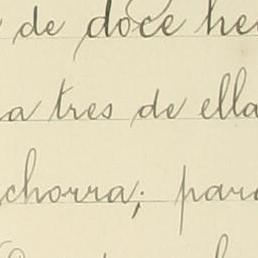 de doce he
a tres de ella
chorra; para